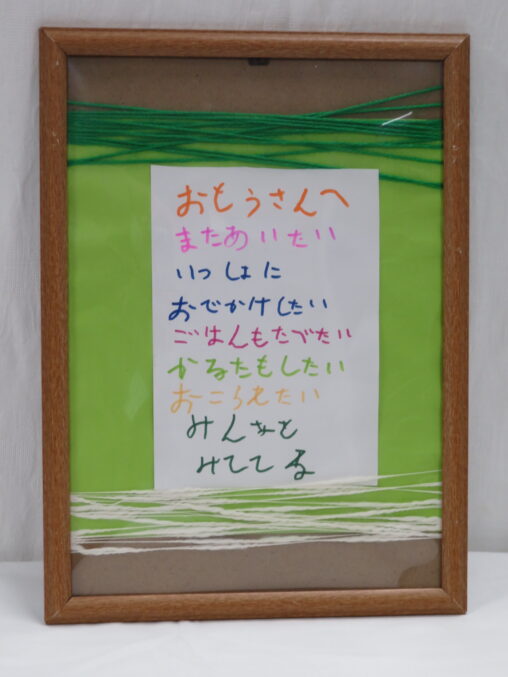 おもうさんへ
またあいたい
いっしょに
おでかけしたい
ごはんもたべたい
かるたもしたい
おこられたい
みんなと
みててる